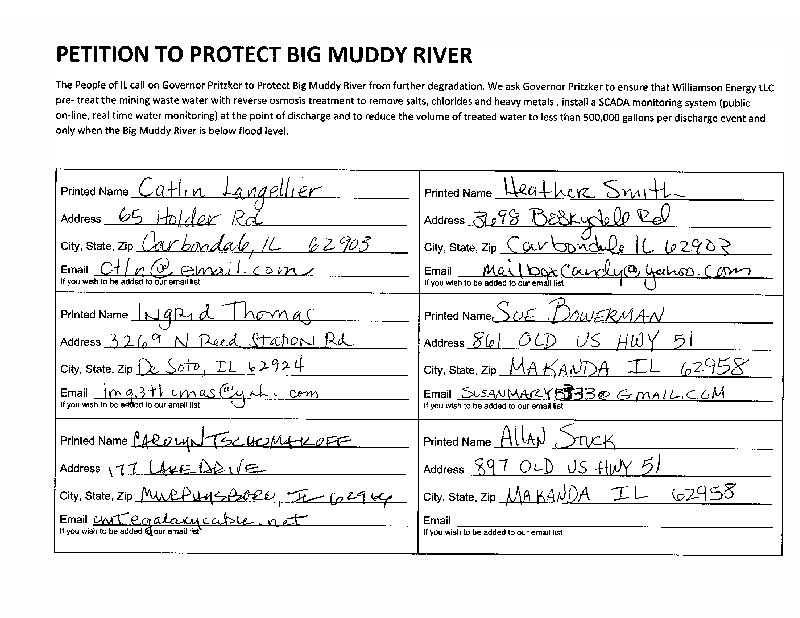 PETITION TO PROTECT BIG MUDDY RIVER
The People of IL call on Governor Pritzker to Protect Big Muddy River from further degradation. We ask Governor Pritzker to ensure that Williamson Energy LLC
pre- treat the mining waste water with reverse osmosis treatment to remove salts, chlorides and heavy metals , install a SCADA monitoring system (public
on-line, real time water monitoring) at the point of discharge and to reduce the volume of treated water to less than 500,000 gallons per discharge event and
only when the Big Muddy River is below flood level.
Printed Name Catlin Langellier
Address 65 Holder Rd
City, State, Zip Carbondale, IL 62903
Email ctln@email.com
If you wish to be added to our email list
Printed Name Heather Smith
Address 3698 Rd
City, State, Zip Carbondale IL 62903
Email mailboxcandy@yahoo.com
If you wish to be added to our email list
Printed Name Ingrid Thomas
Address 3269 N Reed Station Rd
City, State, Zip De Soto, IL 62924
Email
If you wish to be added to our email list
Printed Name SUE BOWERMAN
Address 861 OLD US HWY 51
City, State, Zip MAKANDA IL 62958
Email
If you wish to be added to our email list
Printed Name CAROLYN
Address 177 LAKE DRIVE
City, State, Zip MURPHYSBORO, IL 62966
Email cmt@galaxycable.net
If you wish to be added to our email list
Printed Name ALLAN STUCK
Address 897 OLD US HWY 51
City, State, Zip MAKANDA IL 62958
Email
If you wish to be added to our email list